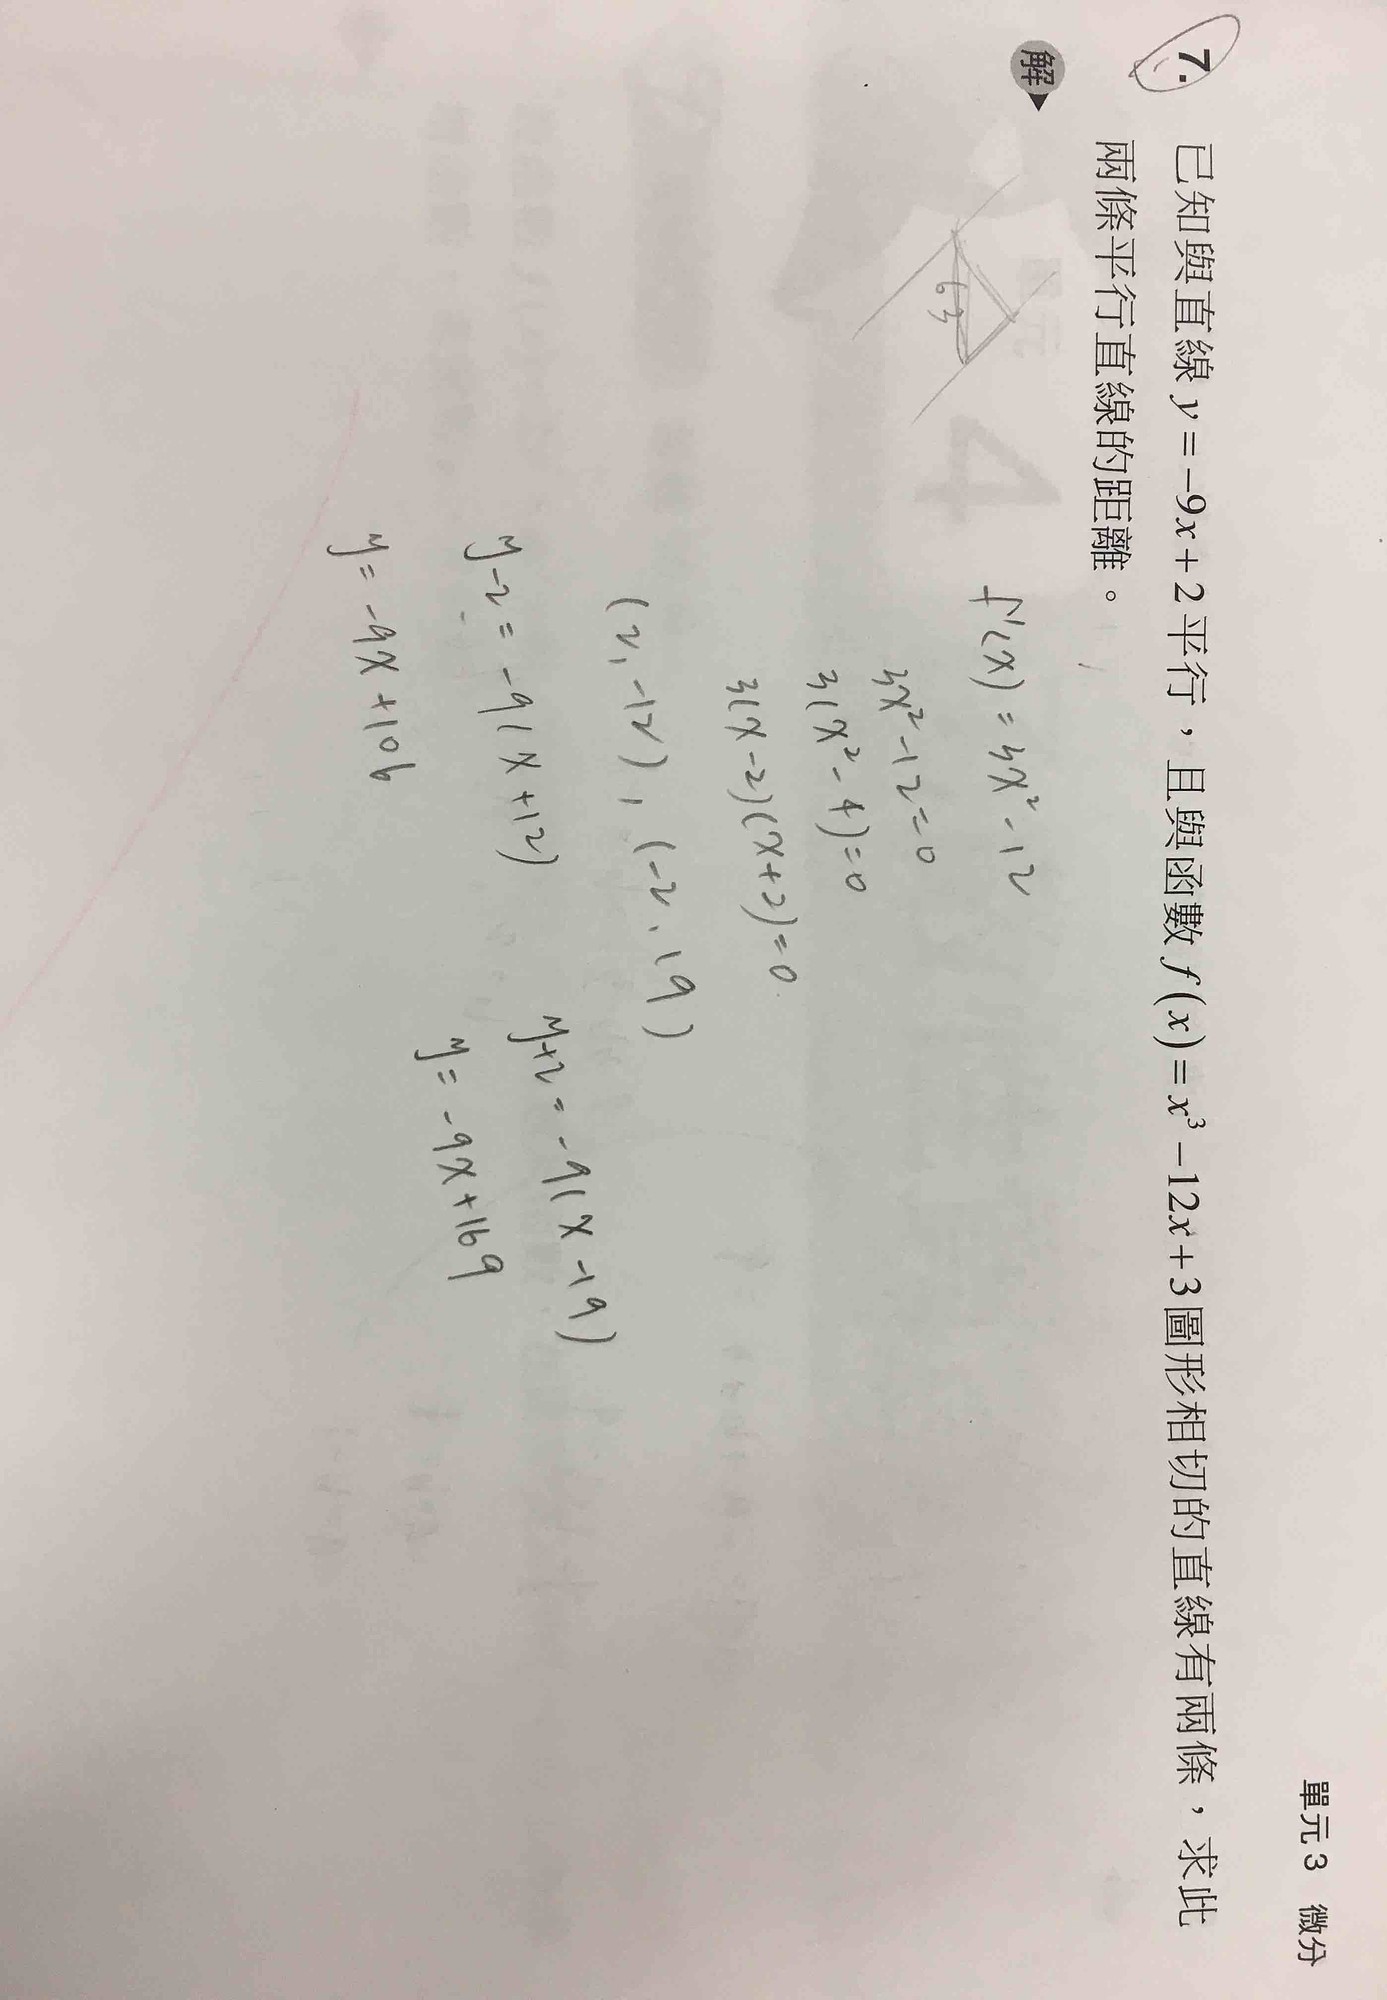 單元3 微分
7. 已知與直線 y = -9x + 2 平行，且與函數 f(x) = x³ - 12x + 3 圖形相切的直線有兩條，求此
兩條平行直線的距離。
解
63
4
f'(x) = 3x² - 12
3x² - 12 = 0
3(x² - 4) = 0
3(x - 2)(x + 2) = 0
(2, -12), (-2, 19)
y - 2 = -9(x + 12)
y + 2 = -9(x - 19)
y = -9x + 106
y = -9x + 169